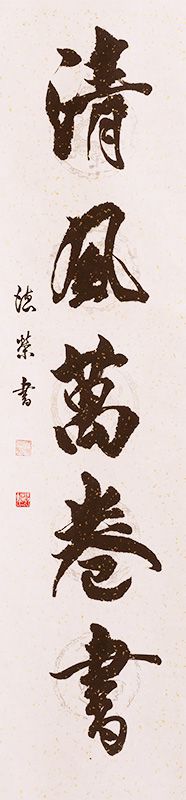 清風萬卷書
德榮書